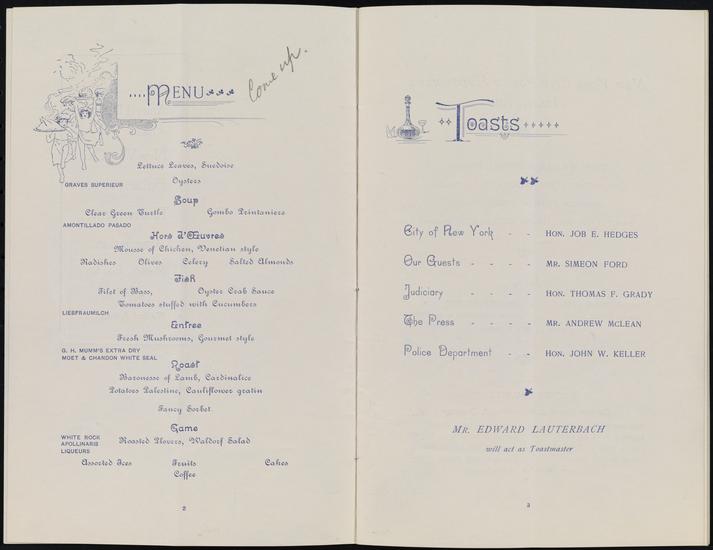 MENU
Come up.
Lettuce Leaves, Suedoise
Oysters
GRAVES SUPERIEUR
Soup
Clear Green Turtle Gombo Printaniere
AMONTILLADO PASADO
Hors d'Œuvres
Mousse of Chicken, Venetian style
Radishes Olives Celery Salted Almonds
Fish
Filet of Bass, Oyster Crab Sauce
Tomatoes stuffed with Cucumbers
LIEBFRAUMILCH
Entree
Fresh Mushrooms, Gourmet style
G. H. MUMM'S EXTRA DRY
MOET & CHANDON WHITE SEAL
Roast
Baronesse of Lamb, Cardinalice
Potatoes Palestine, Cauliflower gratin
Fancy Sorbet
Game
WHITE ROCK
APOLLINARIS
LIQUEURS
Roasted Plovers, Waldorf Salad
Assorted Ices Fruits Cakes
Coffee
2
Toasts
City of New York - - HON. JOB E. HEDGES
Our Guests - - - - MR. SIMEON FORD
Judiciary - - - - HON. THOMAS F. GRADY
The Press - - - - MR. ANDREW McLEAN
Police Department - - HON. JOHN W. KELLER
MR. EDWARD LAUTERBACH
will act as Toastmaster
3